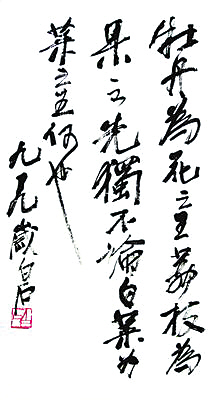 牡丹為花之王荔枝為
果之先獨不論白菜為
菜之王何也
歲白石